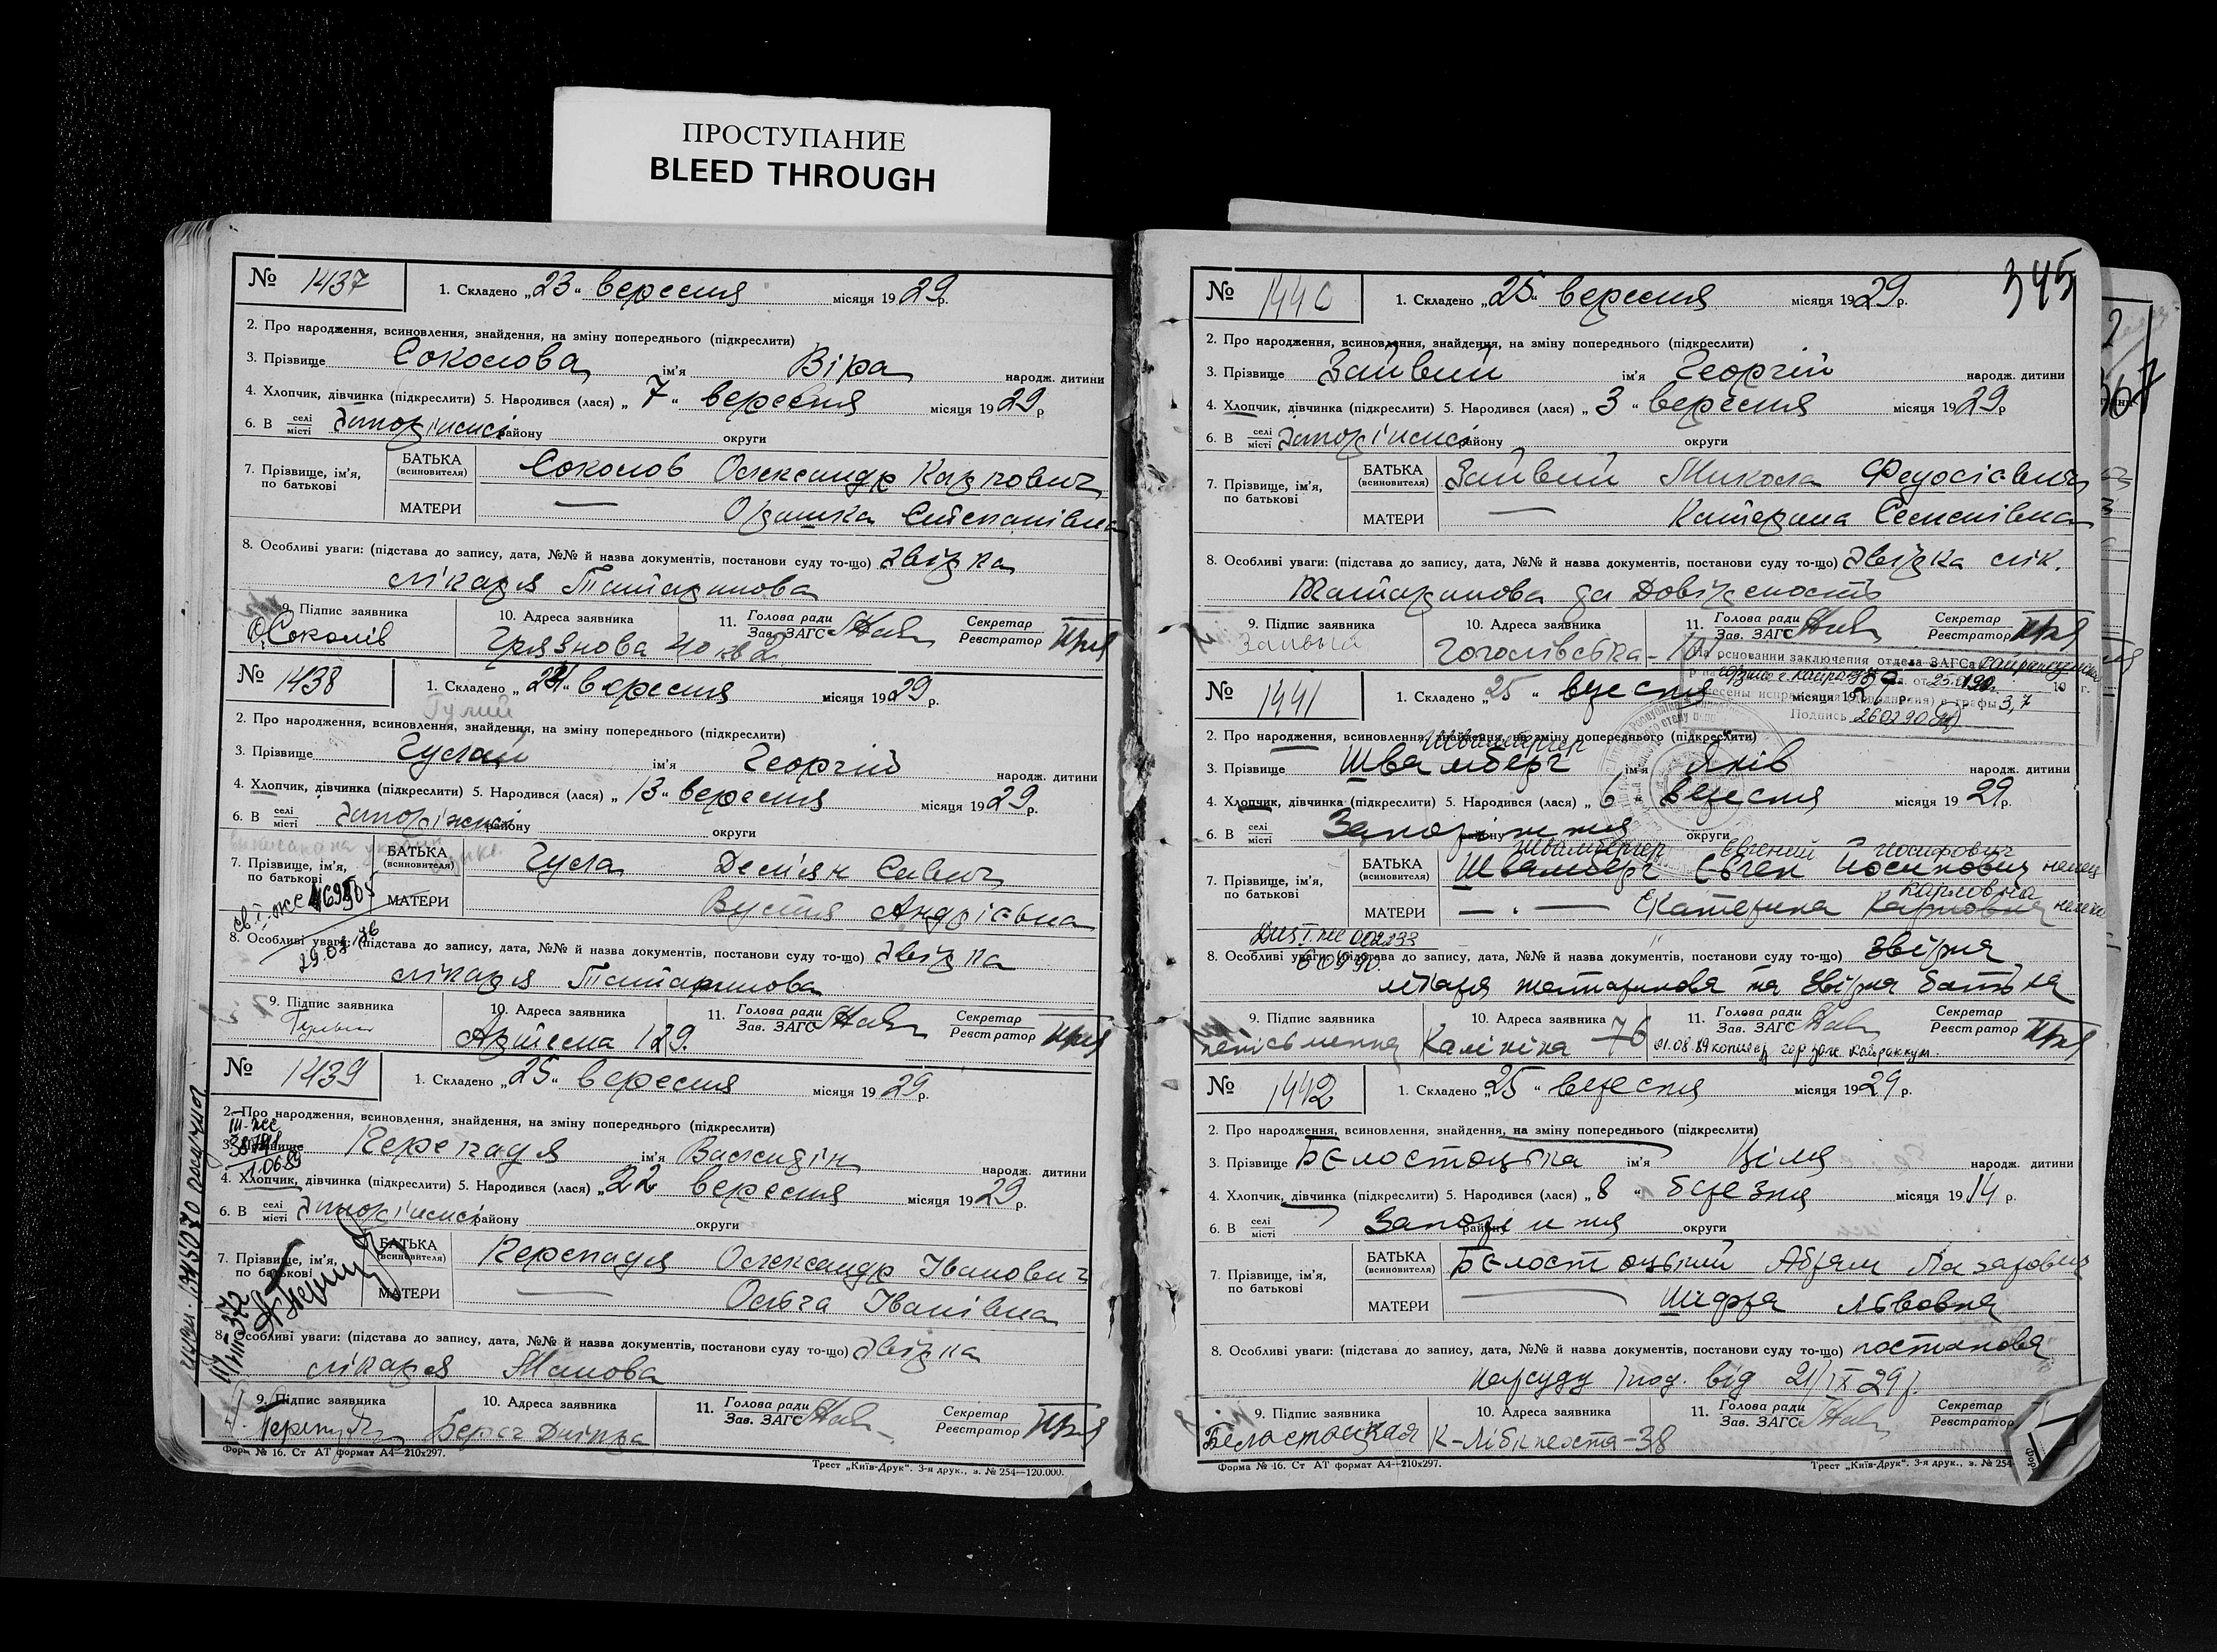 ПРОСТУПАНИЕ
BLEED THROUGH
№ 1437
1. Складено „23“ вересня місяця 1929р.
2. Про народження, всиновлення, знайдення, на зміну попереднього (підкреслити)
3. Прізвище Соколова ім'я Віра народж. дитини
4. Хлопчик, дівчинка (підкреслити) 5. Народився (лася) „7“ вересня місяця 1929р
6. В селі місті Запоріжжі району округи
7. Прізвище, ім'я, по батькові
БАТЬКА (всиновителя) Соколов Олександр Карпович
МАТЕРИ — Оришка Степанівна
8. Особливі уваги: (підстава до запису, дата, №№ й назва документів, постанови суду то-що) звізка
лікаря Татаринова
9. Підпис заявника 10. Адреса заявника 11. Голова ради Зав. ЗАГС Секретар Реєстратор
О.Соколів Грязнова 40 кв 2
№ 1438
1. Складено „24“ вересня місяця 1929р.
Гулий
2. Про народження, всиновлення, знайдення, на зміну попереднього (підкреслити)
3. Прізвище ім'я Георгій народж. дитини
4. Хлопчик, дівчинка (підкреслити) 5. Народився (лася) „13“ вересня місяця 1929р.
6. В селі місті Запоріжжі району округи
7. Прізвище, ім'я, по батькові
БАТЬКА (всиновителя) Гула Дем'ян Савич
МАТЕРИ Вустя Андріївна
8. Особливі уваги: (підстава до запису, дата, №№ й назва документів, постанови суду то-що) звізка
лікаря Татаринова
9. Підпис заявника 10. Адреса заявника 11. Голова ради Зав. ЗАГС Секретар Реєстратор
Артема 129.
№ 1439
1. Складено „25“ вересня місяця 1929р.
2. Про народження, всиновлення, знайдення, на зміну попереднього (підкреслити)
3. Прізвище Перепадя ім'я народж. дитини
4. Хлопчик, дівчинка (підкреслити) 5. Народився (лася) „22 вересня місяця 1929р.
6. В селі місті Запоріжжі району округи
7. Прізвище, ім'я, по батькові
БАТЬКА (всиновителя) Перепадя Олександр Іванович
МАТЕРИ — Ольга Іванівна
8. Особливі уваги: (підстава до запису, дата, №№ й назва документів, постанови суду то-що) звізка
лікаря
9. Підпис заявника 10. Адреса заявника 11. Голова ради Зав. ЗАГС Секретар Реєстратор
Берег Дніпра
Форм № 16. Ст АТ формат А4—210х297.
Трест „Київ-Друк“. 3-я друк., з. № 254—120.000.
345
№ 1440
1. Складено „25“ вересня місяця 1929р.
2. Про народження, всиновлення, знайдення, на зміну попереднього (підкреслити)
3. Прізвище Зайвий ім'я Георгій народж. дитини
4. Хлопчик, дівчинка (підкреслити) 5. Народився (лася) „3“ вересня місяця 1929р
6. В селі місті Запоріжжі району округи
7. Прізвище, ім'я, по батькові
БАТЬКА (всиновителя) Зайвий Микола Федосієвич
МАТЕРИ — Катерина Семенівна
8. Особливі уваги: (підстава до запису, дата, №№ й назва документів, постанови суду то-що) звізка лік.
Татаринова
9. Підпис заявника 10. Адреса заявника 11. Голова ради Зав. ЗАГС Секретар Реєстратор
Гоголівська
На основании заключения отдела ЗАГСа
Подпись
№ 1441
1. Складено 25 “ вересня місяця 19 р.
2. Про народження, всиновлення, знайдення, на зміну попереднього (підкреслити)
Швамбергер
3. Прізвище Швамберг ім'я Яків народж. дитини
4. Хлопчик, дівчинка (підкреслити) 5. Народився (лася) „6“ вересня місяця 1929р.
6. В селі місті Запоріжжя району округи
Швамбергер Евгений Иосифович
7. Прізвище, ім'я, по батькові
БАТЬКА (всиновителя) Швамберг Євген Йосипович
Карловна
МАТЕРИ — . — Екатерина Карловна
8. Особливі уваги: (підстава до запису, дата, №№ й назва документів, постанови суду то-що) звізка
лікаря Татаринова та звізка батька
9. Підпис заявника 10. Адреса заявника 11. Голова ради Зав. ЗАГС Секретар Реєстратор
Калініна 76
№ 1442
1. Складено „25“ вересня місяця 1929р.
2. Про народження, всиновлення, знайдення, на зміну попереднього (підкреслити)
3. Прізвище Бєлостоцька ім'я Ціля народж. дитини
4. Хлопчик, дівчинка (підкреслити) 5. Народився (лася) „8“ березня місяця 1914р.
6. В селі місті Запоріжжя району округи
7. Прізвище, ім'я, по батькові
БАТЬКА (всиновителя) Бєлостоцький Абрам Лазарович
МАТЕРИ — Шифра Львовна
8. Особливі уваги: (підстава до запису, дата, №№ й назва документів, постанови суду то-що) постанова
нарсуду від 21/IX 29р.
9. Підпис заявника 10. Адреса заявника 11. Голова ради Зав. ЗАГС Секретар Реєстратор
Беластоцкая К-Лібкнехта-38
Форма № 16. Ст АТ формат А4—210х297.
Трест „Київ-Друк“. 3-я друк., з. № 254